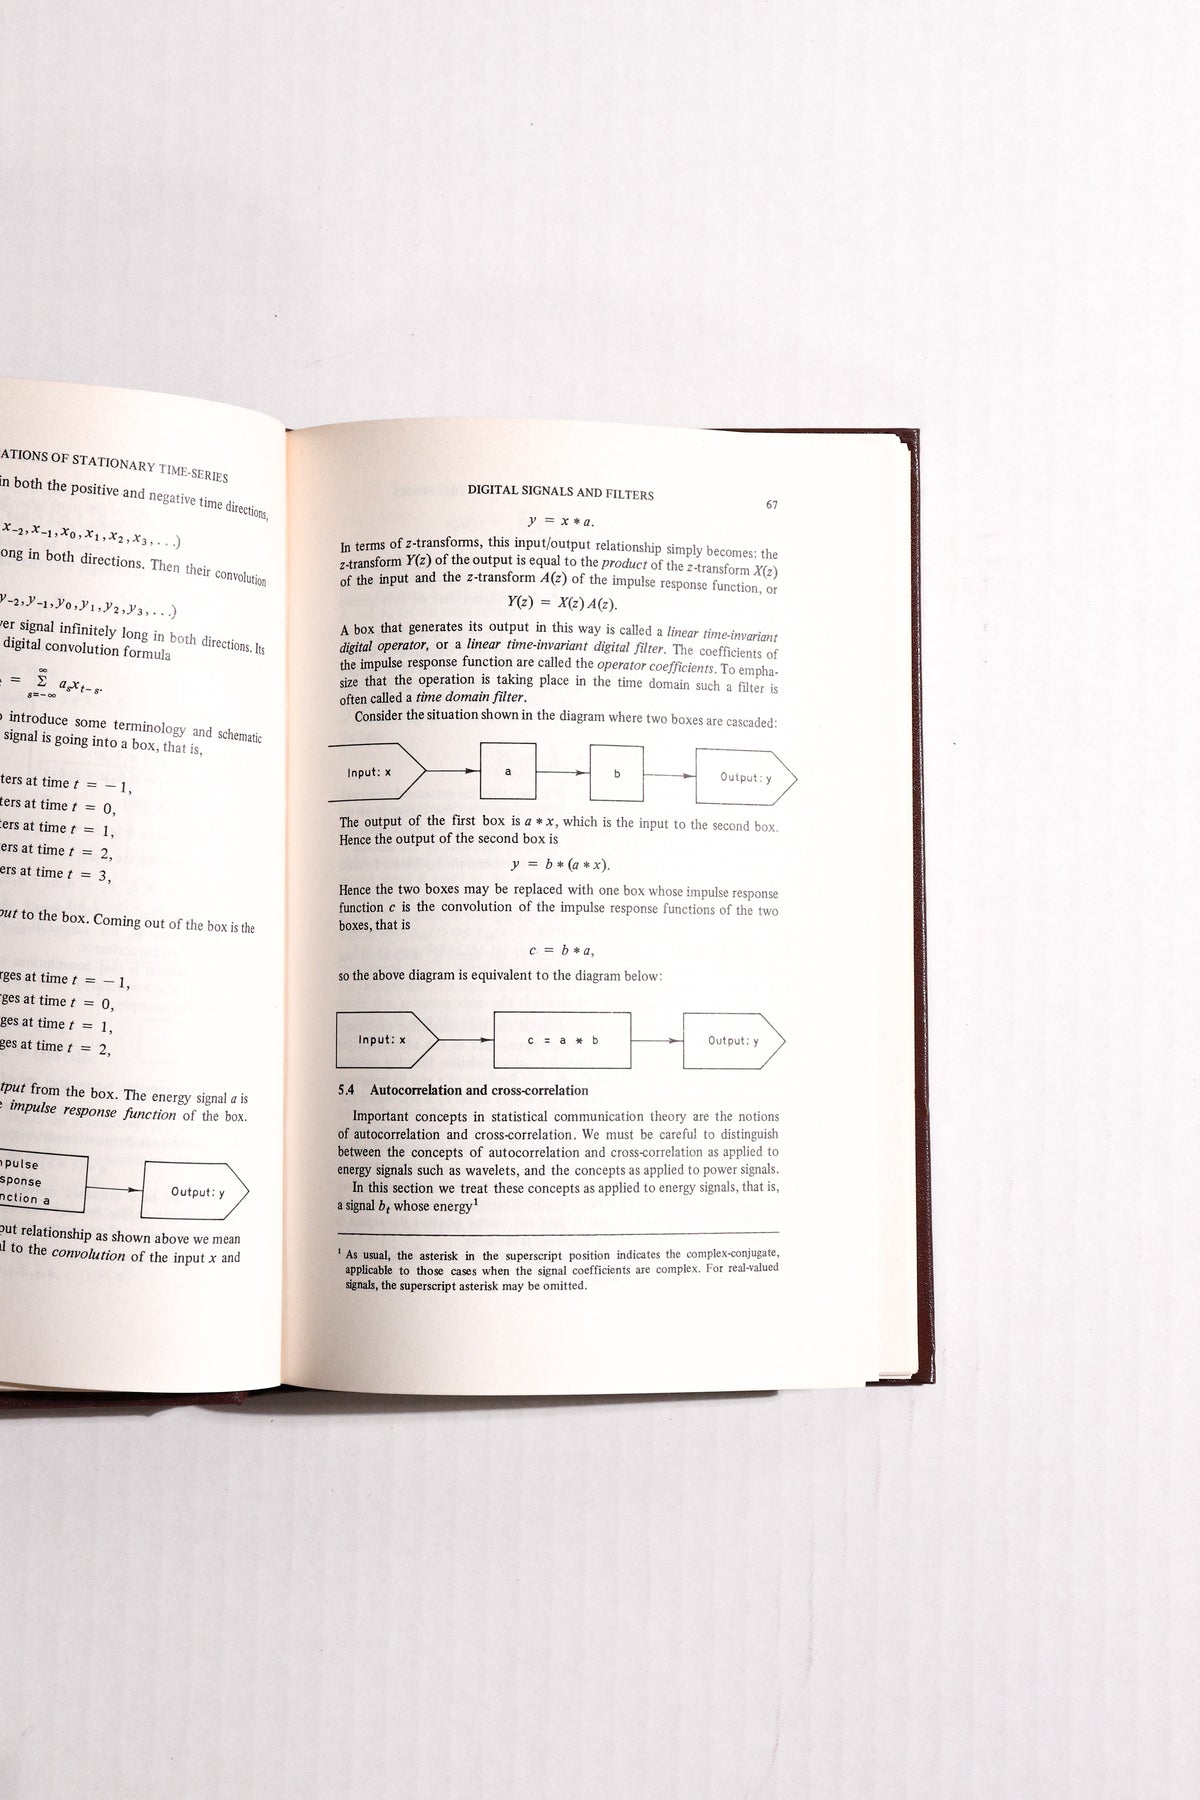 ATIONS OF STATIONARY TIME-SERIES
in both the positive and negative time directions,
x₋₂, x₋₁, x₀, x₁, x₂, x₃, . . .)
ong in both directions. Then their convolution
y₋₂, y₋₁, y₀, y₁, y₂, y₃, . . .)
er signal infinitely long in both directions. Its
digital convolution formula
= Σ_{s=−∞}^{∞} aₛxₜ₋ₛ.
introduce some terminology and schematic
signal is going into a box, that is,
ters at time t = −1,
ters at time t = 0,
ters at time t = 1,
ers at time t = 2,
ers at time t = 3,
put to the box. Coming out of the box is the
rges at time t = −1,
ges at time t = 0,
ges at time t = 1,
ges at time t = 2,
tput from the box. The energy signal a is
impulse response function of the box.
pulse
sponse
nction a
Output: y
put relationship as shown above we mean
l to the convolution of the input x and
DIGITAL SIGNALS AND FILTERS
67
y = x * a.
In terms of z-transforms, this input/output relationship simply becomes: the
z-transform Y(z) of the output is equal to the product of the z-transform X(z)
of the input and the z-transform A(z) of the impulse response function, or
Y(z) = X(z) A(z).
A box that generates its output in this way is called a linear time-invariant
digital operator, or a linear time-invariant digital filter. The coefficients of
the impulse response function are called the operator coefficients. To empha-
size that the operation is taking place in the time domain such a filter is
often called a time domain filter.
Consider the situation shown in the diagram where two boxes are cascaded:
Input: x a b Output: y
The output of the first box is a * x, which is the input to the second box.
Hence the output of the second box is
y = b * (a * x).
Hence the two boxes may be replaced with one box whose impulse response
function c is the convolution of the impulse response functions of the two
boxes, that is
c = b * a,
so the above diagram is equivalent to the diagram below:
Input: x c = a * b Output: y
5.4 Autocorrelation and cross-correlation
Important concepts in statistical communication theory are the notions
of autocorrelation and cross-correlation. We must be careful to distinguish
between the concepts of autocorrelation and cross-correlation as applied to
energy signals such as wavelets, and the concepts as applied to power signals.
In this section we treat these concepts as applied to energy signals, that is,
a signal bₜ whose energy¹
¹ As usual, the asterisk in the superscript position indicates the complex-conjugate,
applicable to those cases when the signal coefficients are complex. For real-valued
signals, the superscript asterisk may be omitted.